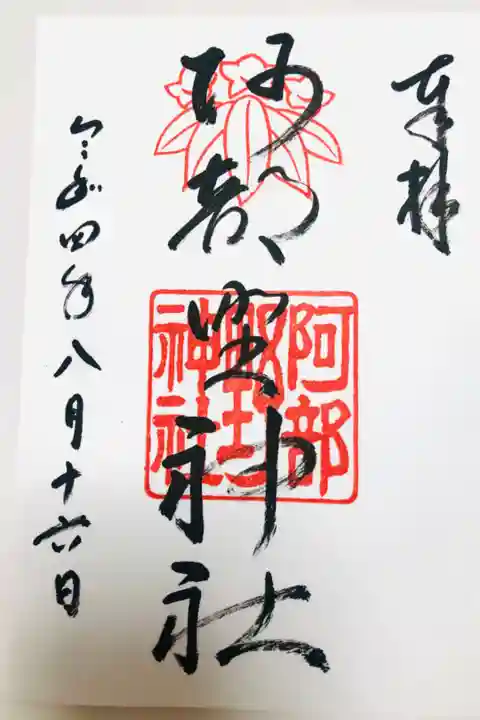 奉拝
阿部野神社
阿部
野
神社
令和四年八月十六日